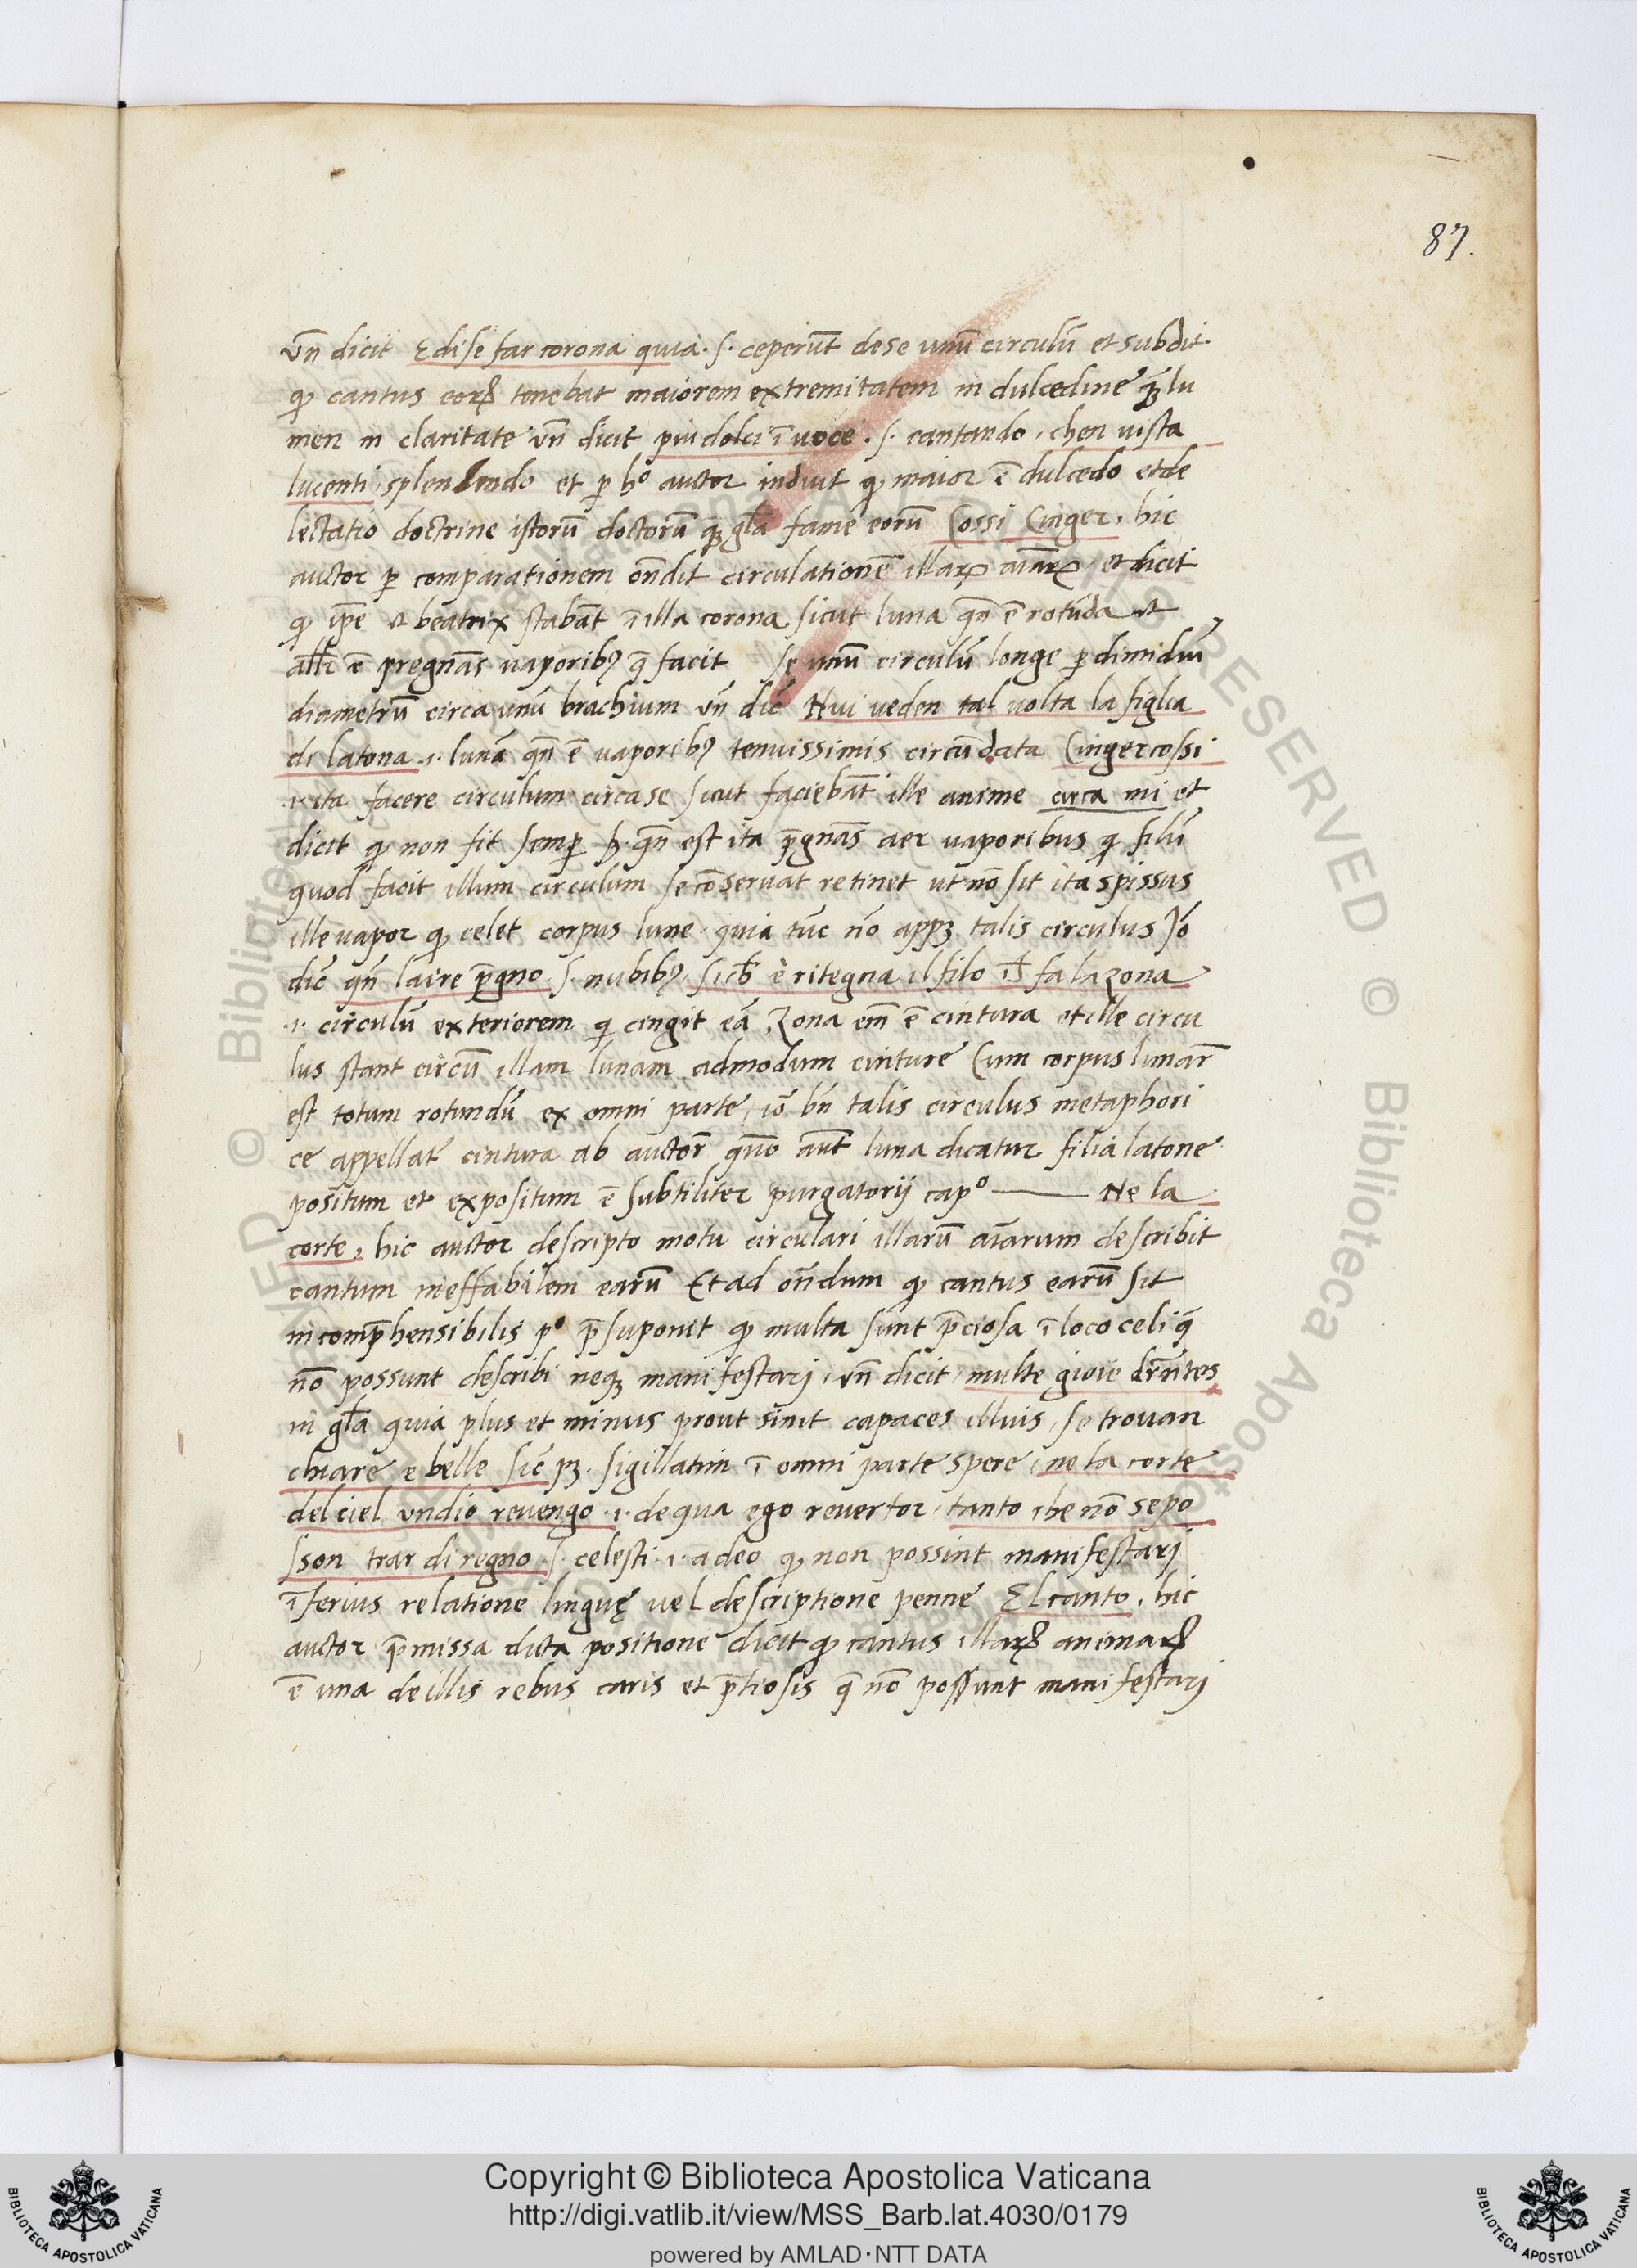 87.
vn̄ dicit Edise far corona quia .s. ceperūt dese unū circulū et subdit
ꝙ cantus eorꝝ tenebat maiorem extremitatem in dulcedine qꝫ lu
men in claritate vn̄ dicit piu dolci ī uoce .s. cantando, chen uista
lucenti, splendendo et ꝑ ho auctor induit ꝙ maior ē dulcedo et de
lectatio doctrine istorū doctorū qꝫ gl̄a fame eorū Cossi Cinger, hic
auctor ꝑ comparationem on̄dit circulationē illarꝝ aīarꝝ et dicit
ꝙ ip̄e et beatrix stabāt ī illa corona sicut luna qn̄ ē rotūda et
ē pregnās uaporibꝫ q̄ facit se unū circulū longe ꝑ dimidiū
diametrū circa unū brachium vn̄ dic̄ Nui ueden tal uolta la figlia
di latona .i. lunā qn̄ ē uaporibꝫ tenuissimis circūdata Cingercossi
.i. ita facere circulum circa se sicut faciebāt ille anime circa mi et
dicit ꝙ non fit semꝑ qn̄ est ita p̄gnās aer uaporibus ꝙ filū
quod facit illum circulum se cōseruat retinet ut nō sit ita spissus
ille uapor ꝙ celet corpus lune quia tūc nō appꝫ talis circulus Iō
dic̄ qn̄ laire p̄gno .s. nubibꝫ, sich̄ è ritegna il filo fa la zona
.i. circulū exteriorem qi cingit eā, Zona em̄ ē cintura et ille circu
lus stant circū illam lunam admodum cinture Cum corpus lunar̄
est totum rotundū ex omni parte, iō bn̄ talis circulus metaphori
ce appellat̄ cintura ab auctor̄ quō aūt luna dicatur filia latone
positum et expositum ē subtiliter purgatorij capo —— Ne la
corte, hic auctor descripto motu circulari illarū aīarum describit
cantum ineffabilem earū Et ad on̄dum ꝙ cantus earū sit
incomp̄hensibilis po p̄suponit ꝙ multa sunt p̄ciosa ī loco celi q̄
nō possunt describi neqꝫ manifestari, vn̄ dicit, multe gioie dr̄ntes
in gl̄a quia plus et minus prout sunt capaces illius, se trouan
chiare e belle sic̄ pꝫ. sigillatim ī omni parte spere, ne la corte
del ciel vndio reuengo .i. de qua ego reuertor, tanto che nō se po
sson trar di regno .s. celesti .i. adeo ꝙ non possint manifestari
īferius relatione linguę uel descriptione penne El canto, hic
auctor p̄missa dicta positione dicit ꝙ cantus illarꝝ animarꝝ
ē una de illis rebus caris et p̄tiosis q̄ nō possunt manifestari
Copyright © Biblioteca Apostolica Vaticana
http://digi.vatlib.it/view/MSS_Barb.lat.4030/0179
powered by AMLAD·NTT DATA
BIBLIOTECA APOSTOLICA VATICANA
BIBLIOTECA APOSTOLICA VATICANA